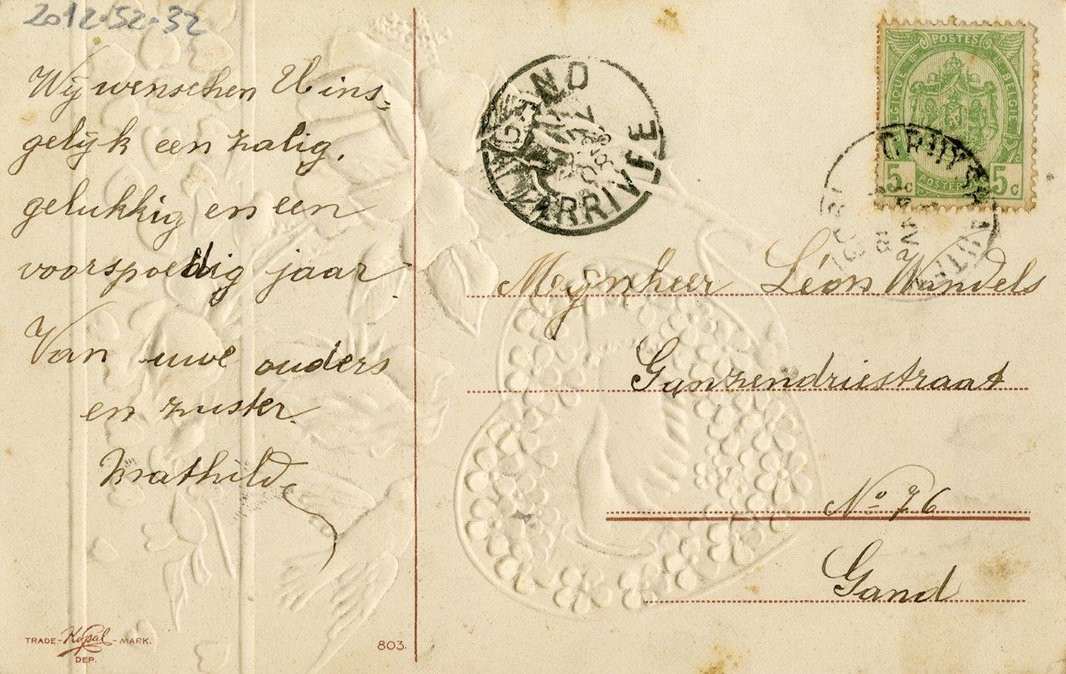 2012-52-32
Wij wenschen U ins-
gelijk een zalig,
gelukkig en een
voorspoedig jaar.
Van uwe ouders
en zuster.
Mathilde
GAND
ARRIVEE
POSTES
BELGIQUE BELGIE
5c 5c
POSTERIJEN
Mynheer Léon Wandels
Ganzendriestraat
No 76
Gand
TRADE - Kopal - MARK.
DEP.
803.